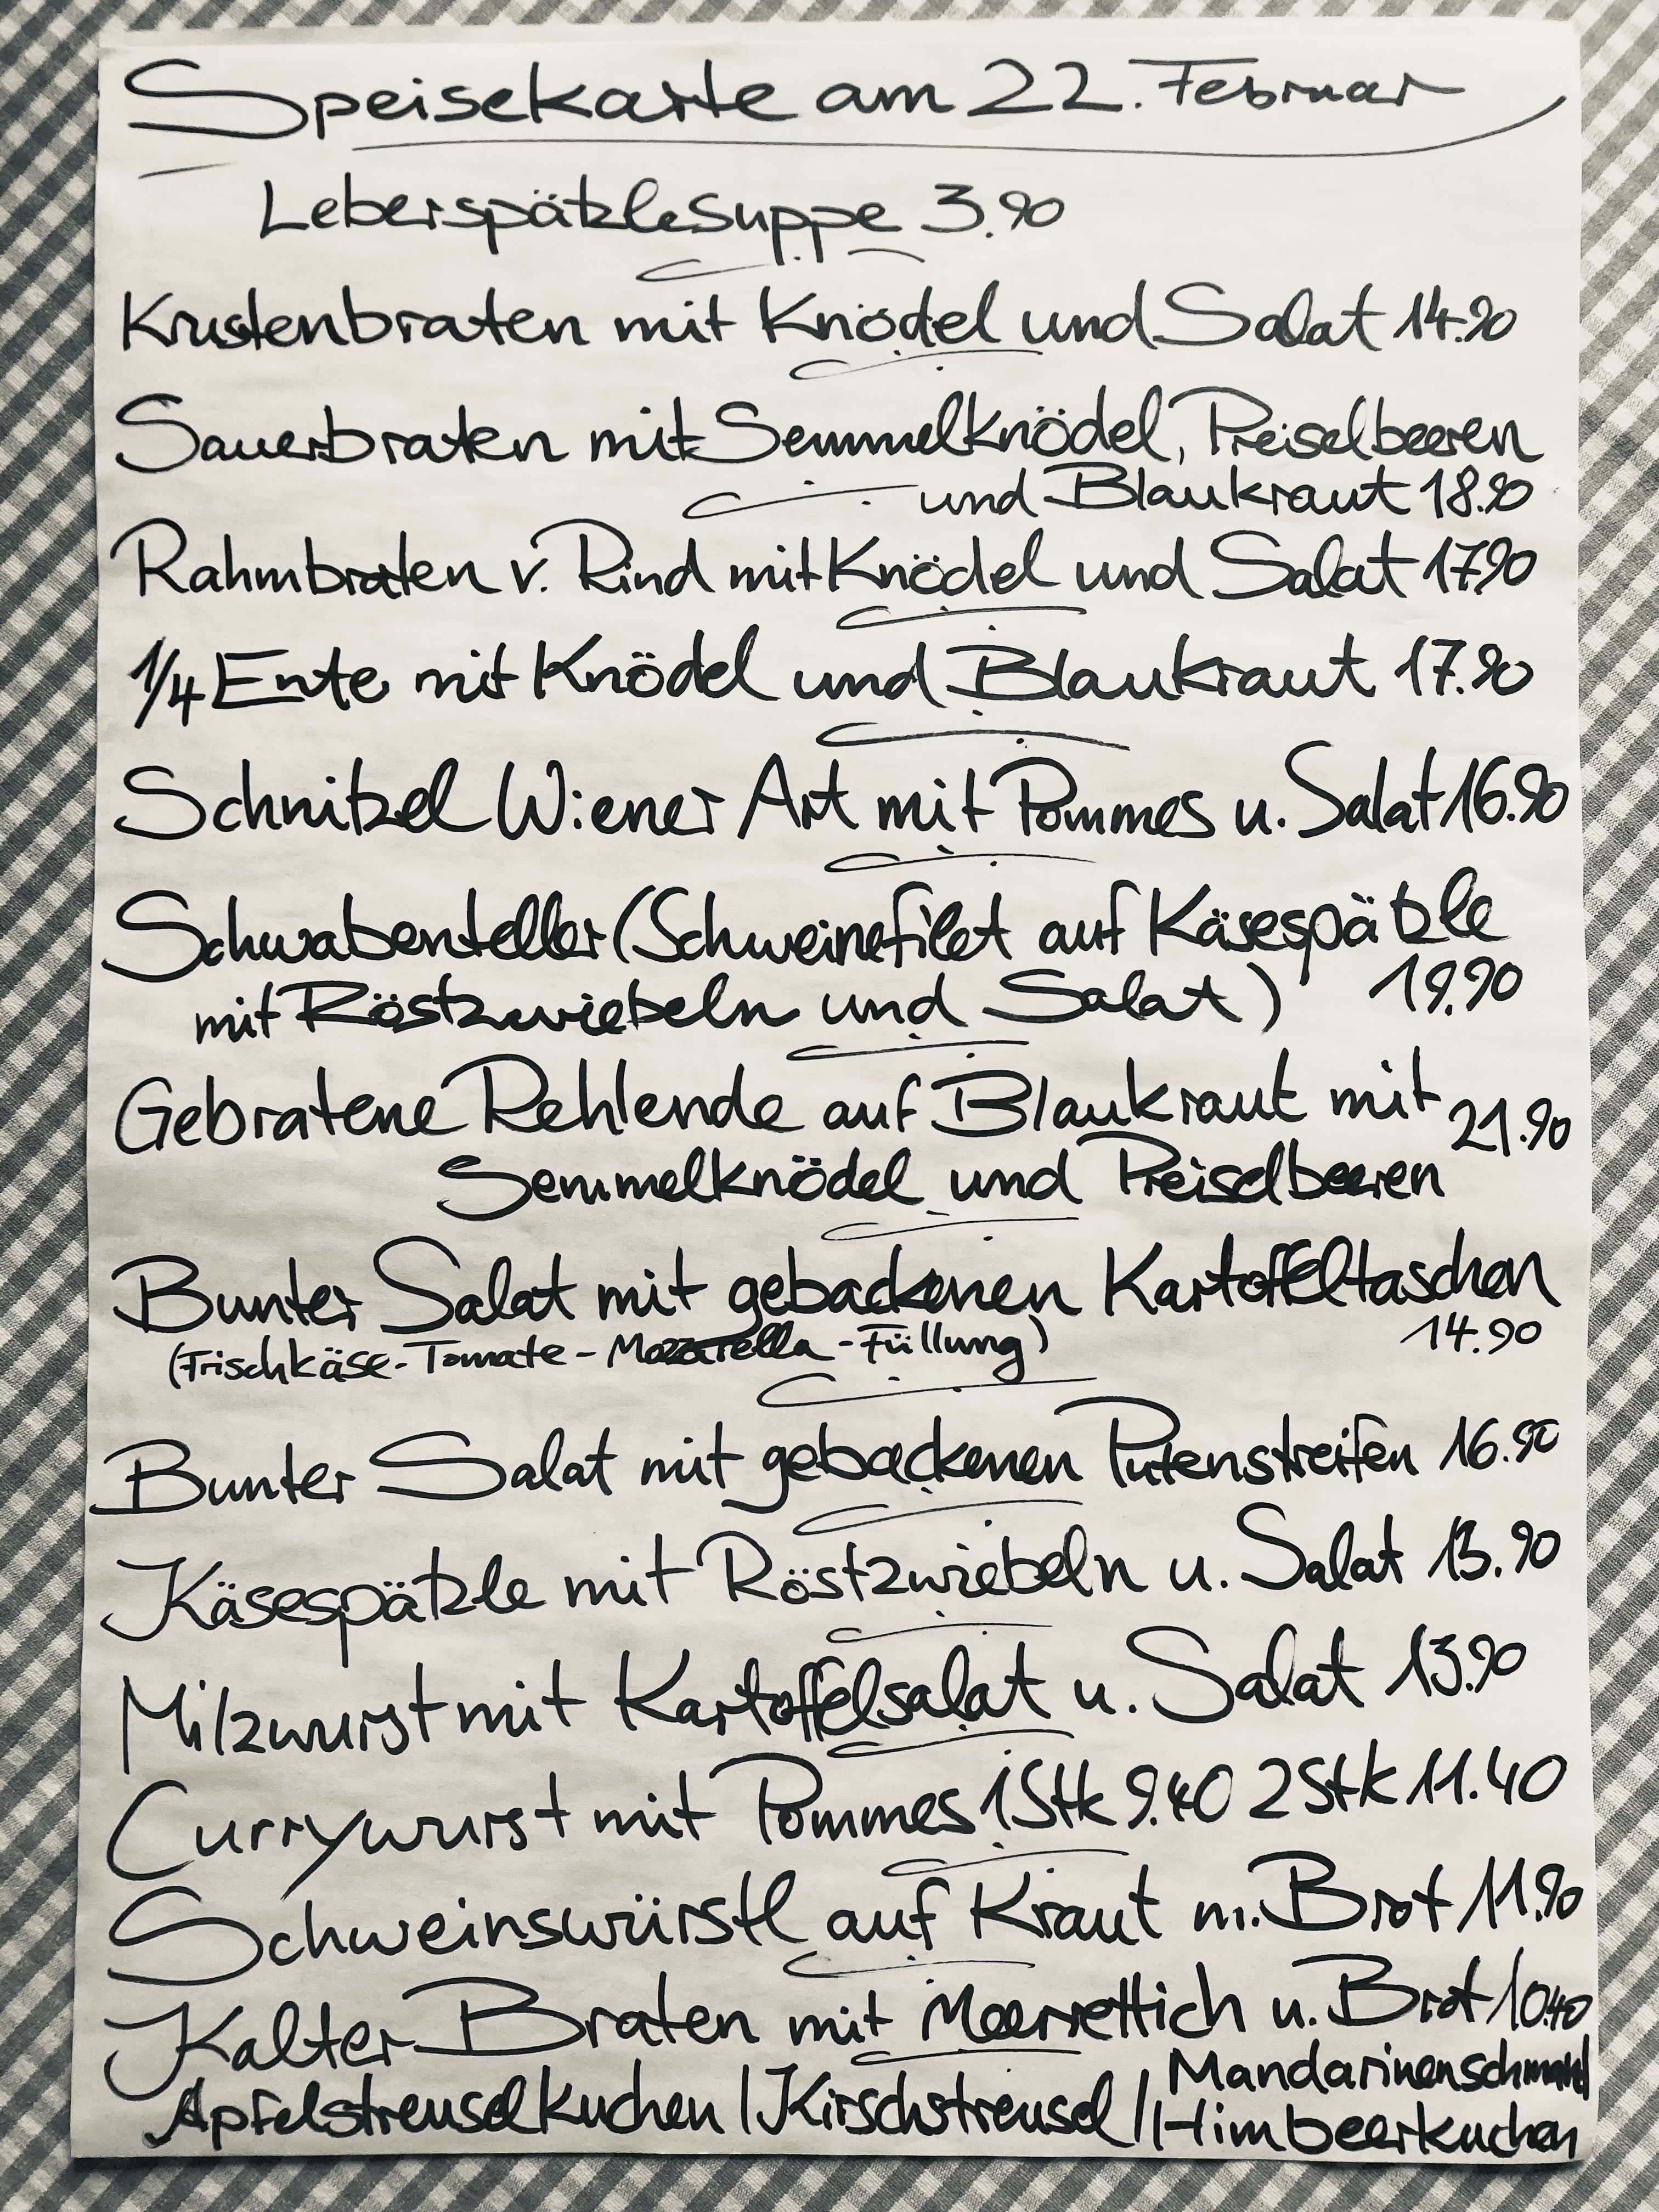 Speisekarte am 22. Februar
Leberspätzlesuppe 3.90
Krustenbraten mit Knödel und Salat 14.90
Sauerbraten mit Semmelknödel, Preiselbeeren
und Blaukraut 18.90
Rahmbraten v. Rind mit Knödel und Salat 17.90
1/4 Ente mit Knödel und Blaukraut 17.90
Schnitzel Wiener Art mit Pommes u. Salat 16.90
Schwabenteller (Schweinefilet auf Käsespätzle
mit Röstzwiebeln und Salat) 19.90
Gebratene Rehlende auf Blaukraut mit 21.90
Semmelknödel und Preiselbeeren
Bunter Salat mit gebackenen Kartoffeltaschen
(Frischkäse-Tomate-Mozzarella-Füllung) 14.90
Bunter Salat mit gebackenen Putenstreifen 16.90
Käsespätzle mit Röstzwiebeln u. Salat 13.90
Milzwurst mit Kartoffelsalat u. Salat 13.90
Currywurst mit Pommes 1Stk 9.40 2Stk 11.40
Schweinswürstl auf Kraut m. Brot 11.90
Kalter Braten mit Meerrettich u. Brot 10.40
Mandarinenschmand
Apfelstreuselkuchen / Kirschstreusel / Himbeerkuchen